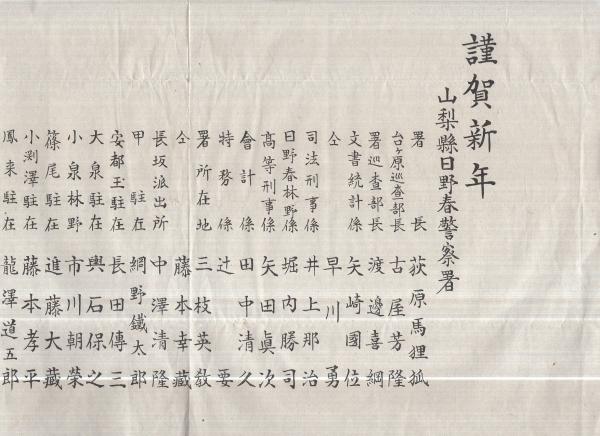 謹賀新年
山梨縣日野春警察署
署長 荻原馬狸狐
台ヶ原巡査部長 古屋芳隆
署巡査部長 渡邊喜綱
文書統計係 矢崎國位
仝 早川勇
司法刑事係 井上那治
日野春林野係 堀内勝司
高等刑事係 矢田眞次
會計係 田中清久
特務係 辻要
署所在地 三枝英敎
仝 藤本幸藏
長坂派出所 中澤清隆
甲駐在 綱野鐵太郎
安都玉駐在 長田傳三
大泉駐在 輿石保之
小泉林野 市川朝榮
篠尾駐在 進藤大藏
小渕澤駐在 藤本孝平
鳳来駐在 龍澤道五郎